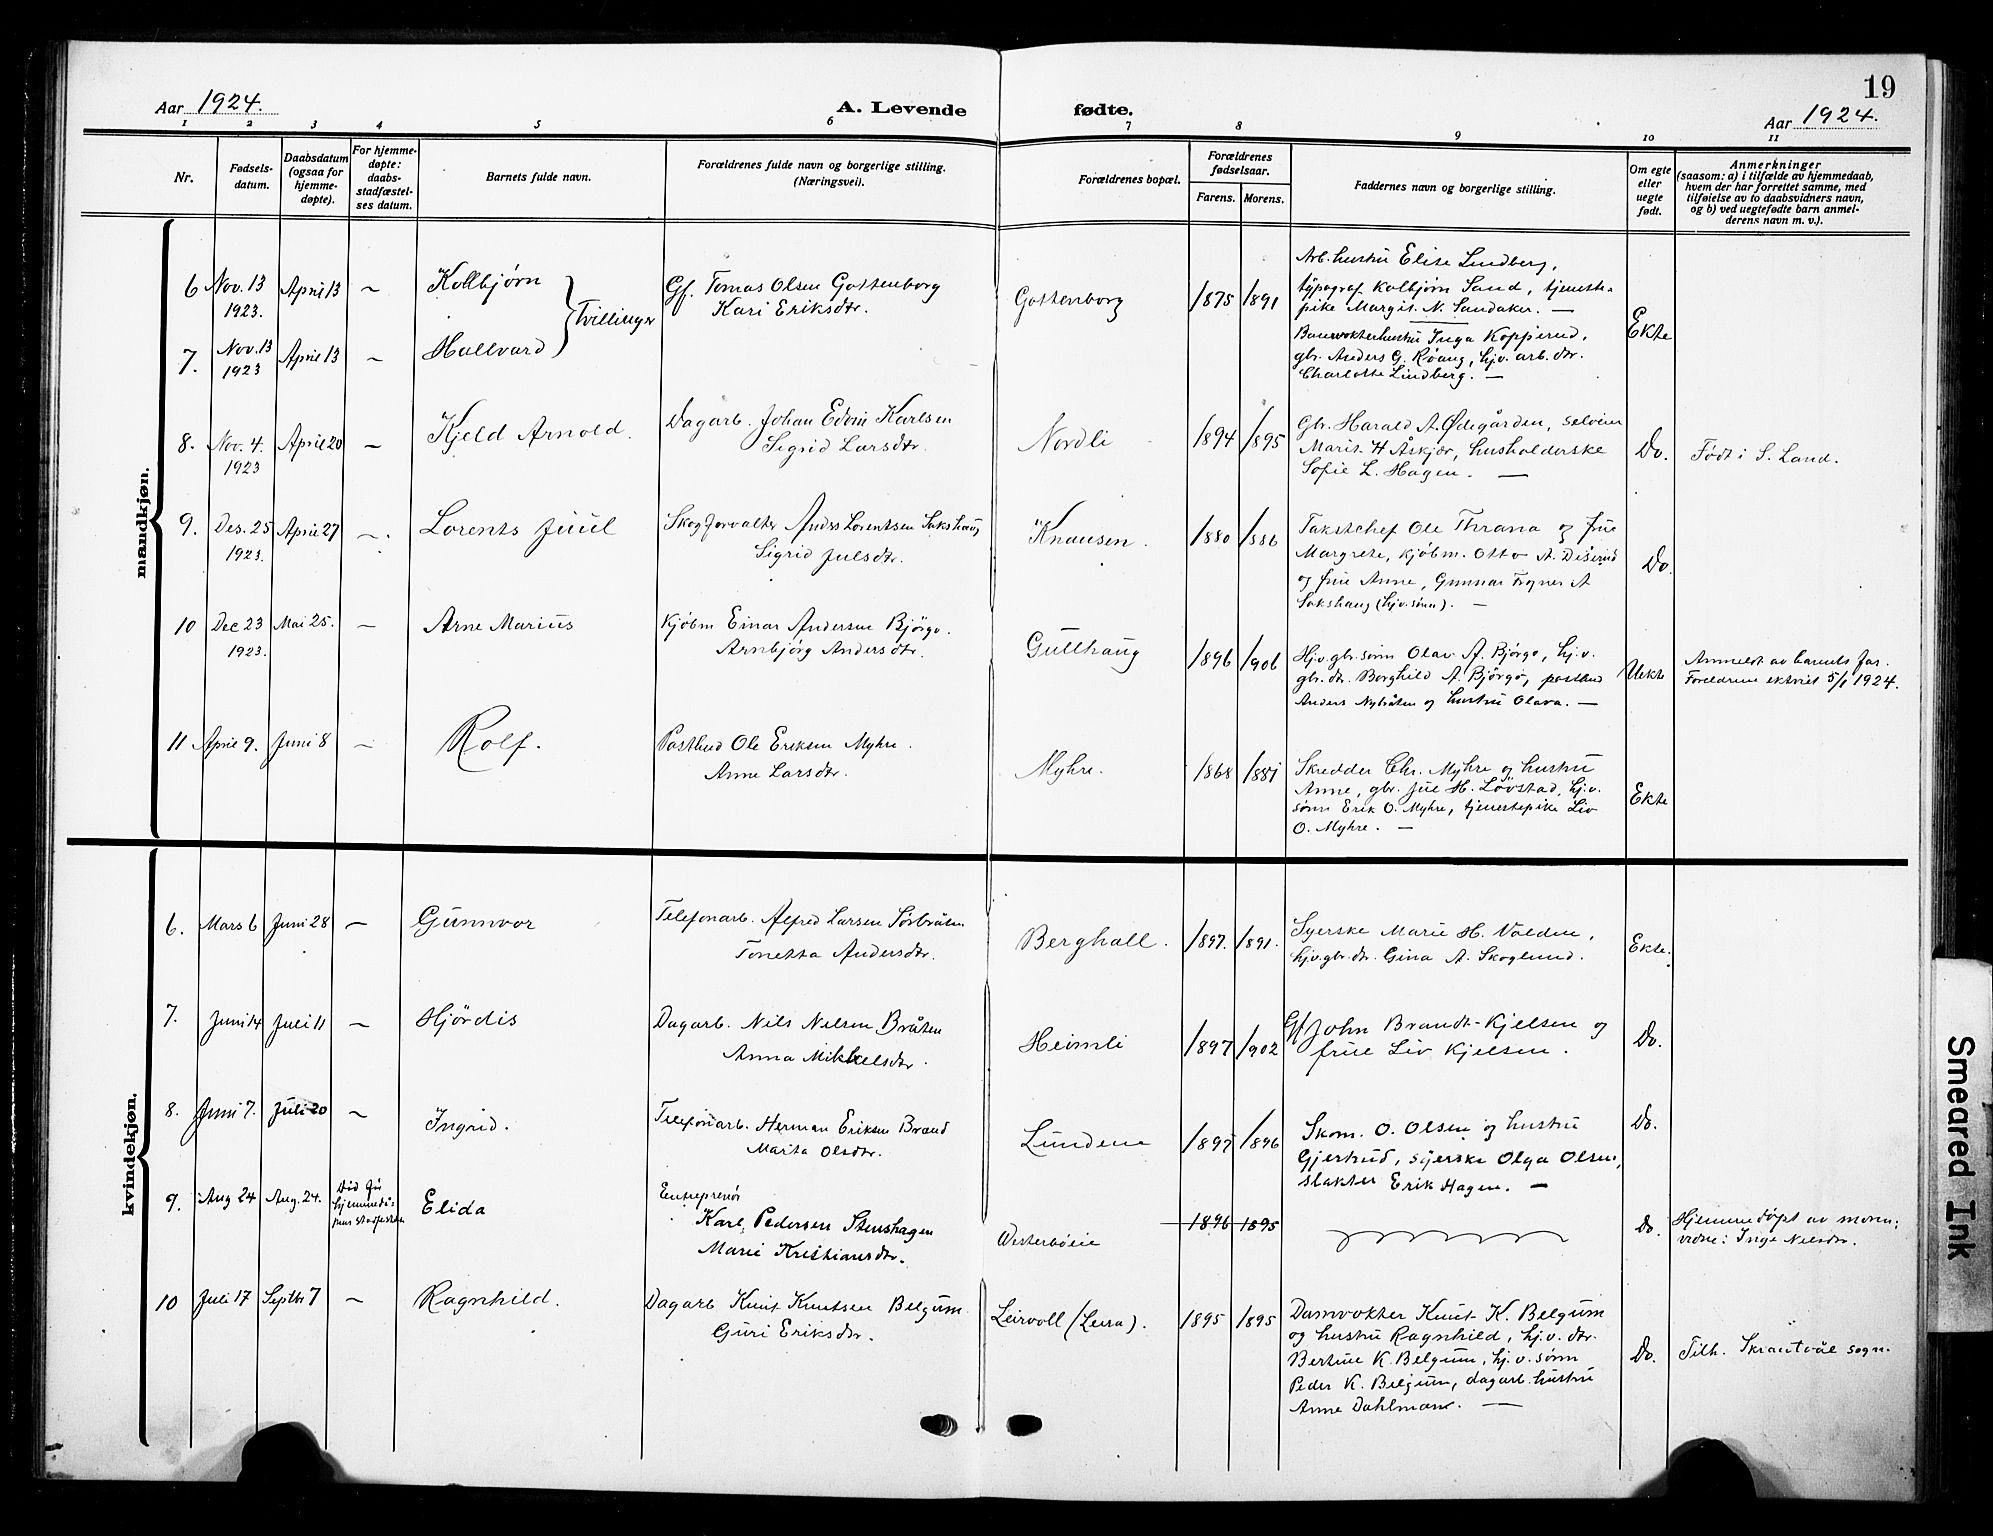 19
Aar 1924.
A. Levende fødte.
Aar 1924.
1 2 3 4 5 6 7 8 9 10 11
Nr.
Fødsels-
datum.
Daabsdatum
(ogsaa for
hjemme-
døpte).
For hjemme-
døpte:
daabs-
stadfæstel-
ses datum.
Barnets fulde navn.
Forældrenes fulde navn og borgerlige stilling.
(Næringsvei).
Forældrenes bopæl.
Forældrenes
fødselsaar.
Farens. Morens.
Faddernes navn og borgerlige stilling.
Om egte
eller
uegte
født.
Anmerkninger
(saasom: a) i tilfælde av hjemmedaab,
hvem der har forrettet samme, med
tilføielse av to daabsvidners navn,
og b) ved uegtefødte barn anmel-
derens navn m. v.).
mandkjøn.
6 Nov. 13
1923.
April 13
~
Kolbjørn
Tvillinger
Gf. Tomas Olsen Gottenborg
Kari Eriksdtr.
Gottenborg
1875 1891
Arb. hustru Elise Lindberg,
typograf Kolbjørn Sand, tjeneste-
pike Margit N. Sandaker. —
Ekte
7. Nov. 13
1923
April 13
~
Hallvard
Banevokterhustru Inga Kopperud,
gbr. Anders G. Røang, hjv. arb. dtr.
Charlotte Lindberg. —
8. Nov. 4.
1923
April 20
~
Kjeld Arnold.
Dagarb. Johan Edvin Karlsen
Sigrid Larsdtr.
Nordli
1894 1895
Gbr. Harald A. Ødegården, selveier
Marit H Åskjær, husholderske
Sofie L. Hagen. —
Do.
Født i S. Land.
9. Des. 25
1923.
April 27
~
Lorents Juul
Skogforvalter Anders Lorentsen Sakshaug
Sigrid Julsdtr.
Knausen.
1880 1886
Takstchef Ole Thrana og frue
Margrete, kjøbm. Otto A. Diserud
og frue Anne, Gunnar Fogner A
Sakshaug (hjv. sønn). —
Do.
10 Dec 23
1923.
Mai 25.
~
Arne Marius
Kjøbm Einar Andersen Bjørgo.
Arnbjørg Andersdtr.
Gullhaug
1896 1906
Hjv. gbr. sønn Olav A. Bjørgo, hj. v.
gbr. dtr. Borghild A. Bjørgo, postbud
Anders Nybråten og hustru Olava. —
Uekte
Anmeldt av barnets far.
Foreldrene ektviet 5/1 1924.
11 April 9.
Juni 8
~
Rolf.
Postbud Ole Eriksen Myhre.
Anne Larsdtr.
Myhre.
1868 1881
Skredder Chr. Myhre og hustru
Anne, gbr. frue H. Løvstad, hj. v.
sønn Erik O. Myhre, tjenestepike Liv
O. Myhre. —
Ekte
kvindekjøn.
6. Mars 6
Juni 28
~
Gunnvor
Telefonarb. Alfred Larsen Sørbråten
Tonetta Andersdtr.
Berghall.
1897. 1891.
Syerske Marie H. Volden,
hjv. gbr. dtr. Gina A. Skoglund.
Ekte.
7. Juni 14
Juli 11
~
Hjørdis
Dagarb. Nils Nilsen Bråten
Anna Mikkelsdtr.
Heimli
1897 1902
Gf John Brandt-Kjelsen og
frue Liv Kjelsen.
Do.
8. Juni 7.
Juli 20
~
Ingrid.
Telefonarb. Herman Eriksen Brand
Marta Olsdtr.
Lundene
1897 1896
Skom. O. Olsen og hustru
Gjertrud, syerske Olga Olsen,
slakter Erik Hagen. —
Do.
9. Aug 24
Aug. 24.
Elida
Entreprenør
Karl Pedersen Stenshagen
Marie Kristiansdtr.
Vesterbøeie
1896 1895
Do.
Hjemmedøpt av moren;
vidne: Inga Nilsdtr.
10 Juli 17
Septbr 7
~
Ragnhild.
Dagarb Knut Knutsen Belgum
Guri Eriksdtr.
Leirvoll (Leira).
1895 1895
Damvokter Knut K. Belgum
og hustru Ragnhild, hj. v. dtr.
Bertine K. Belgum, hj. v. sønn
Peder K. Belgum, dagarb. hustru
Anne Dahlmann. —
Do.
Tilh. Skrautvål sogn.
Smeared Ink